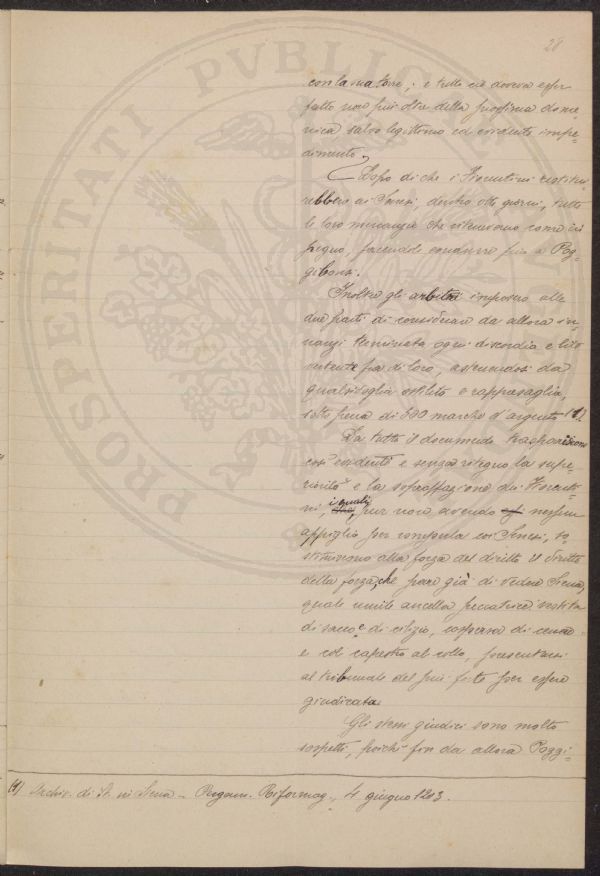 28
con la sua torre; e tutto ciò doveva esser
fatto non più oltre della prossima dome=
nica salvo legittimo ed evidente impe=
dimento.
Dopo di che i Fiorentini restitui
rebbero ai Senesi, dentro otto giorni, tutte
le loro che ritenevano come in
pegno, facendole condurre fino a Pog=
gibonsi.
Inoltre gli arbitri imposero alle
due parti di considerare da allora in=
nanzi terminata ogni discordia e lite
vertente fra di loro, astenendosi da
qualsivoglia ostilità o rappresaglia,
sotto pena di marche d'argento (1).
Da tutto il documento traspariscono
così evidenti e senza ritegno la supe=
riorità e la sopraffazione dei Fiorenti=
ni, i quali, pur non avendo nessun
appiglio per romperla coi Senesi, so
stituirono alla forza del diritto il diritto
della forza, che pare già di vedere Siena,
quale umile ancella peccatrice vestita
di sacco e di cilizio, cospersa di cenere
e col capestro al collo, presentarsi
al tribunale del più forte per essere
giudicata.
Gli stessi giudici sono molto
sospetti, poichè fin da allora Poggi=
(1) Archiv. di St. in Siena - Pergam. Riformag., 4 giugno 1203.
PROSPERITATI PVBLICAE